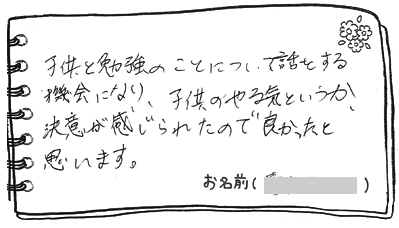 子供と勉強のことについて話をする
機会になり、子供のやる気というか、
決意が感じられたので良かったと
思います。
お名前( )